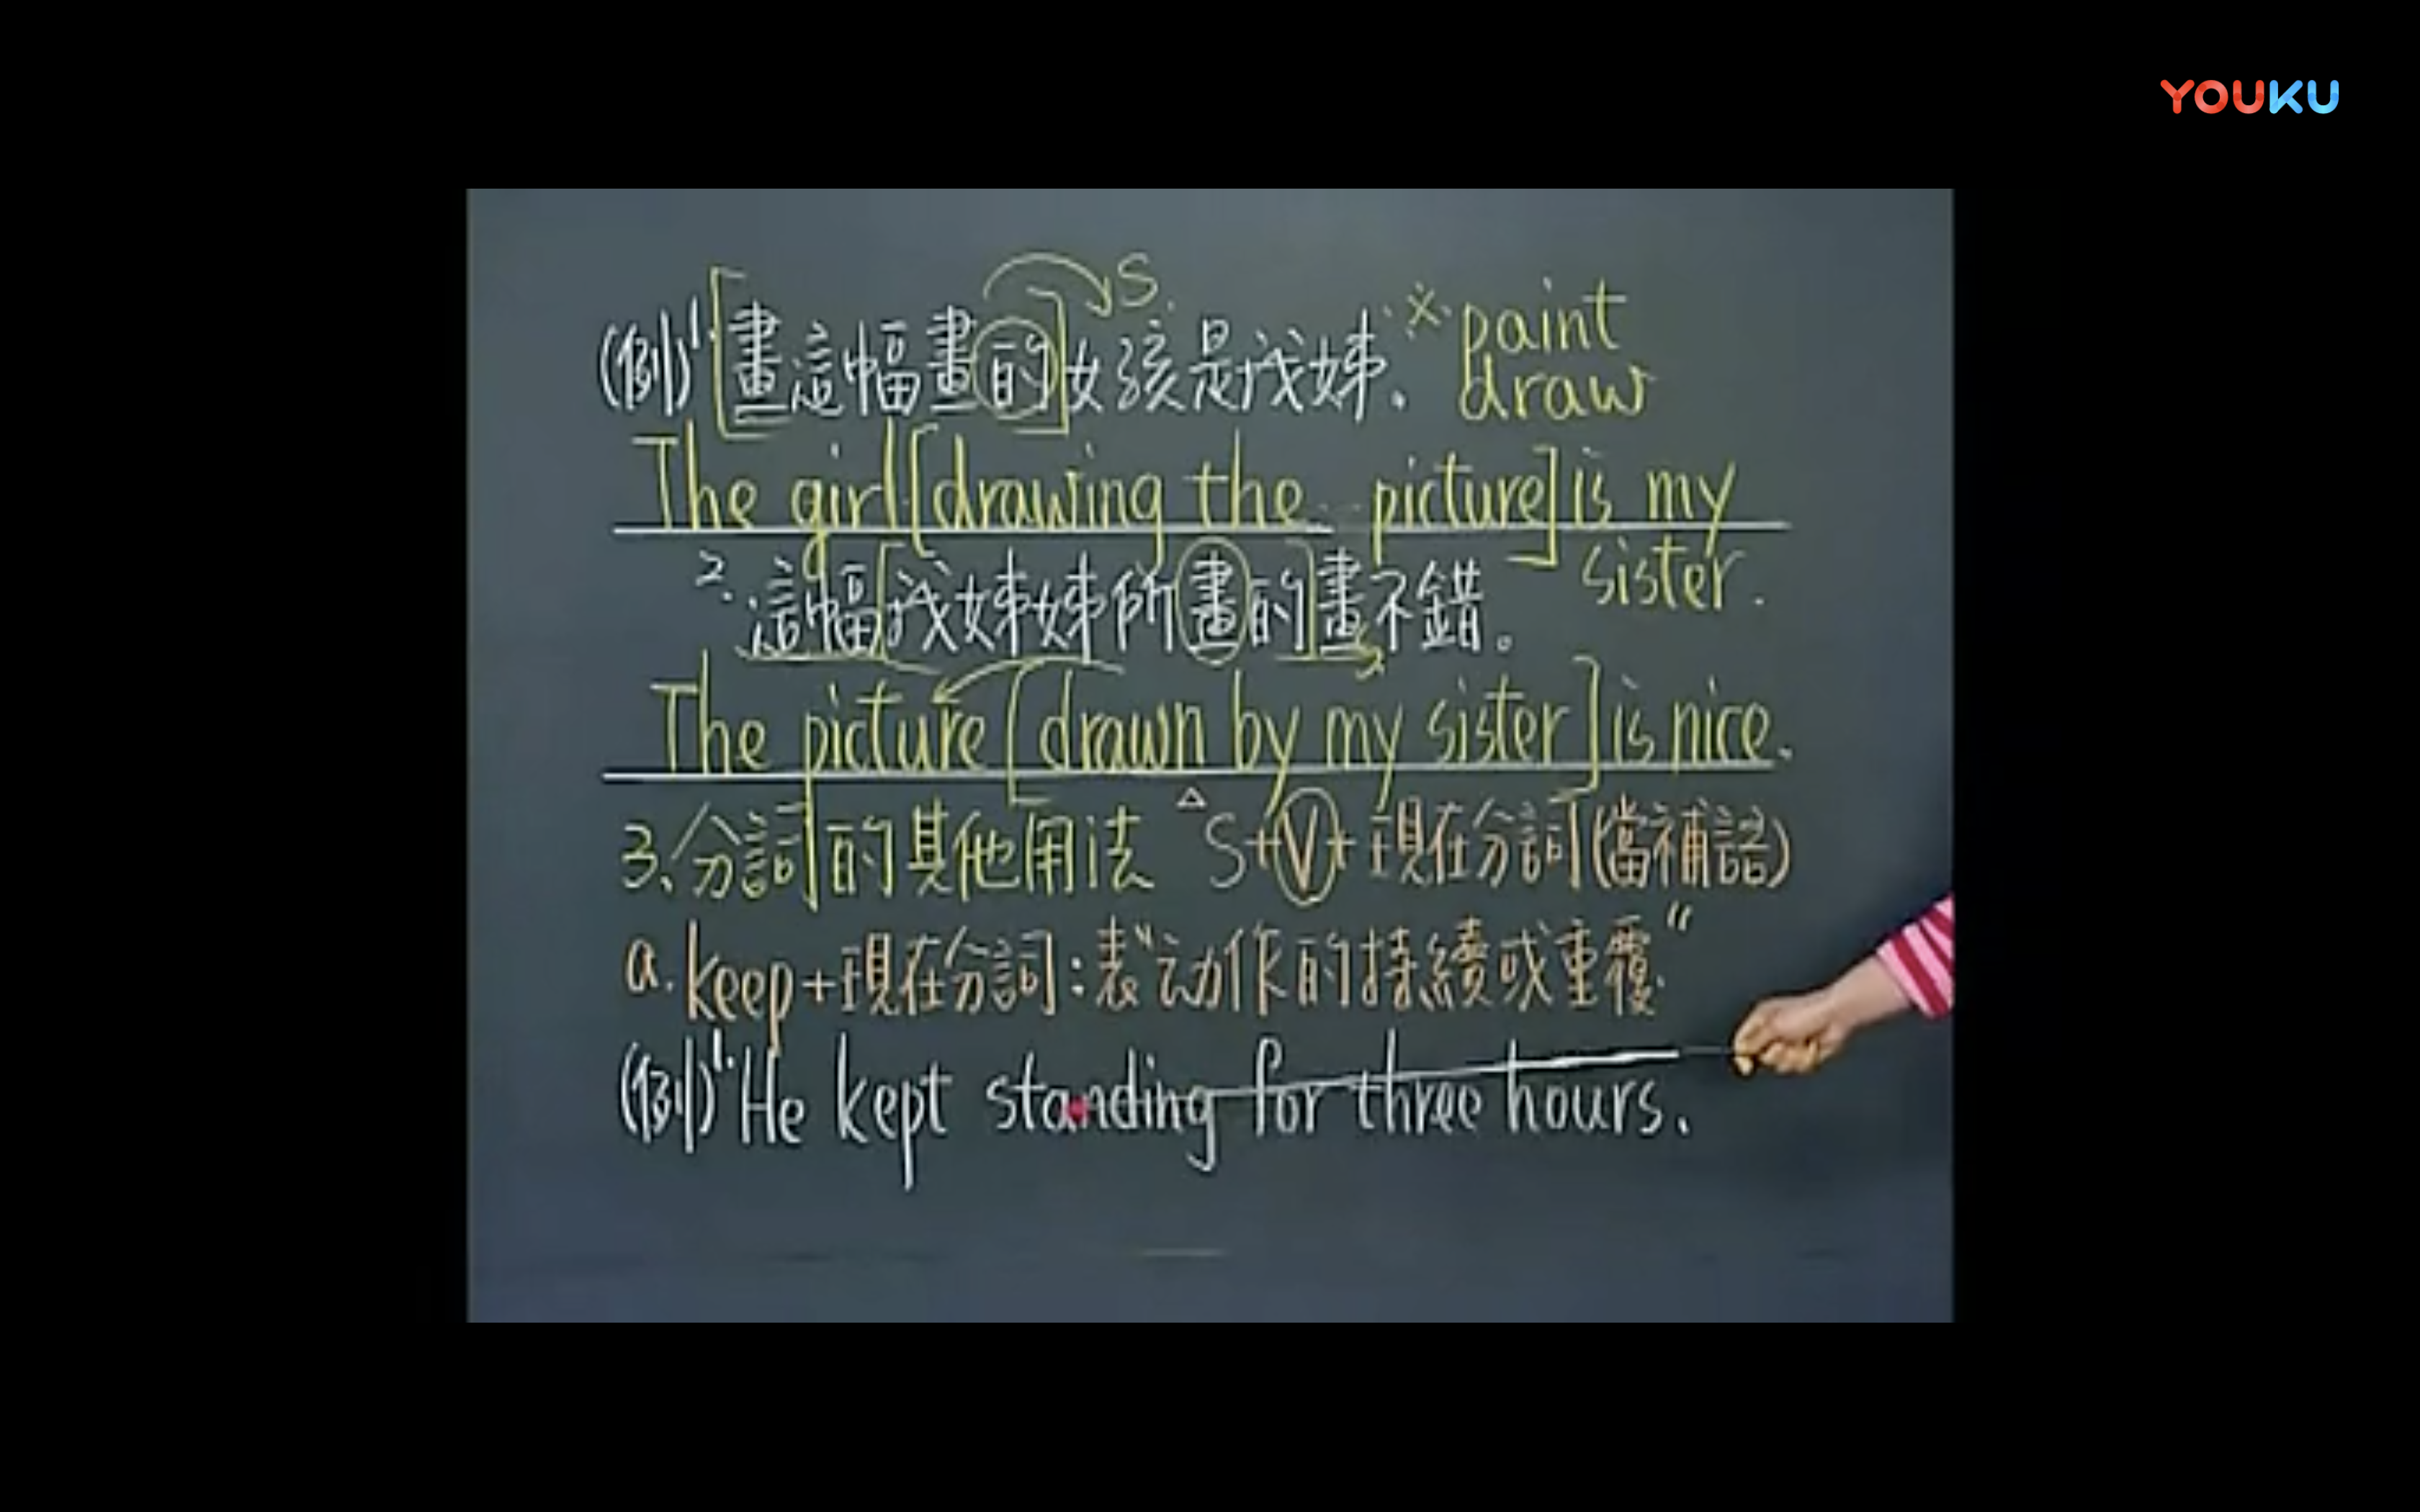 YOUKU
S.
(例)1.[畫這幅畫的]女孩是我姊. ※ paint
draw
The girl [drawing the picture] is my
sister.
2.這幅[我姊姊所畫的]畫不錯。
S
The picture [drawn by my sister] is nice.
3、分詞的其他用法 △S+V+現在分詞(當補語)
a. keep+現在分詞:表"动作的持續或重覆"
(例)1.He kept standing for three hours.